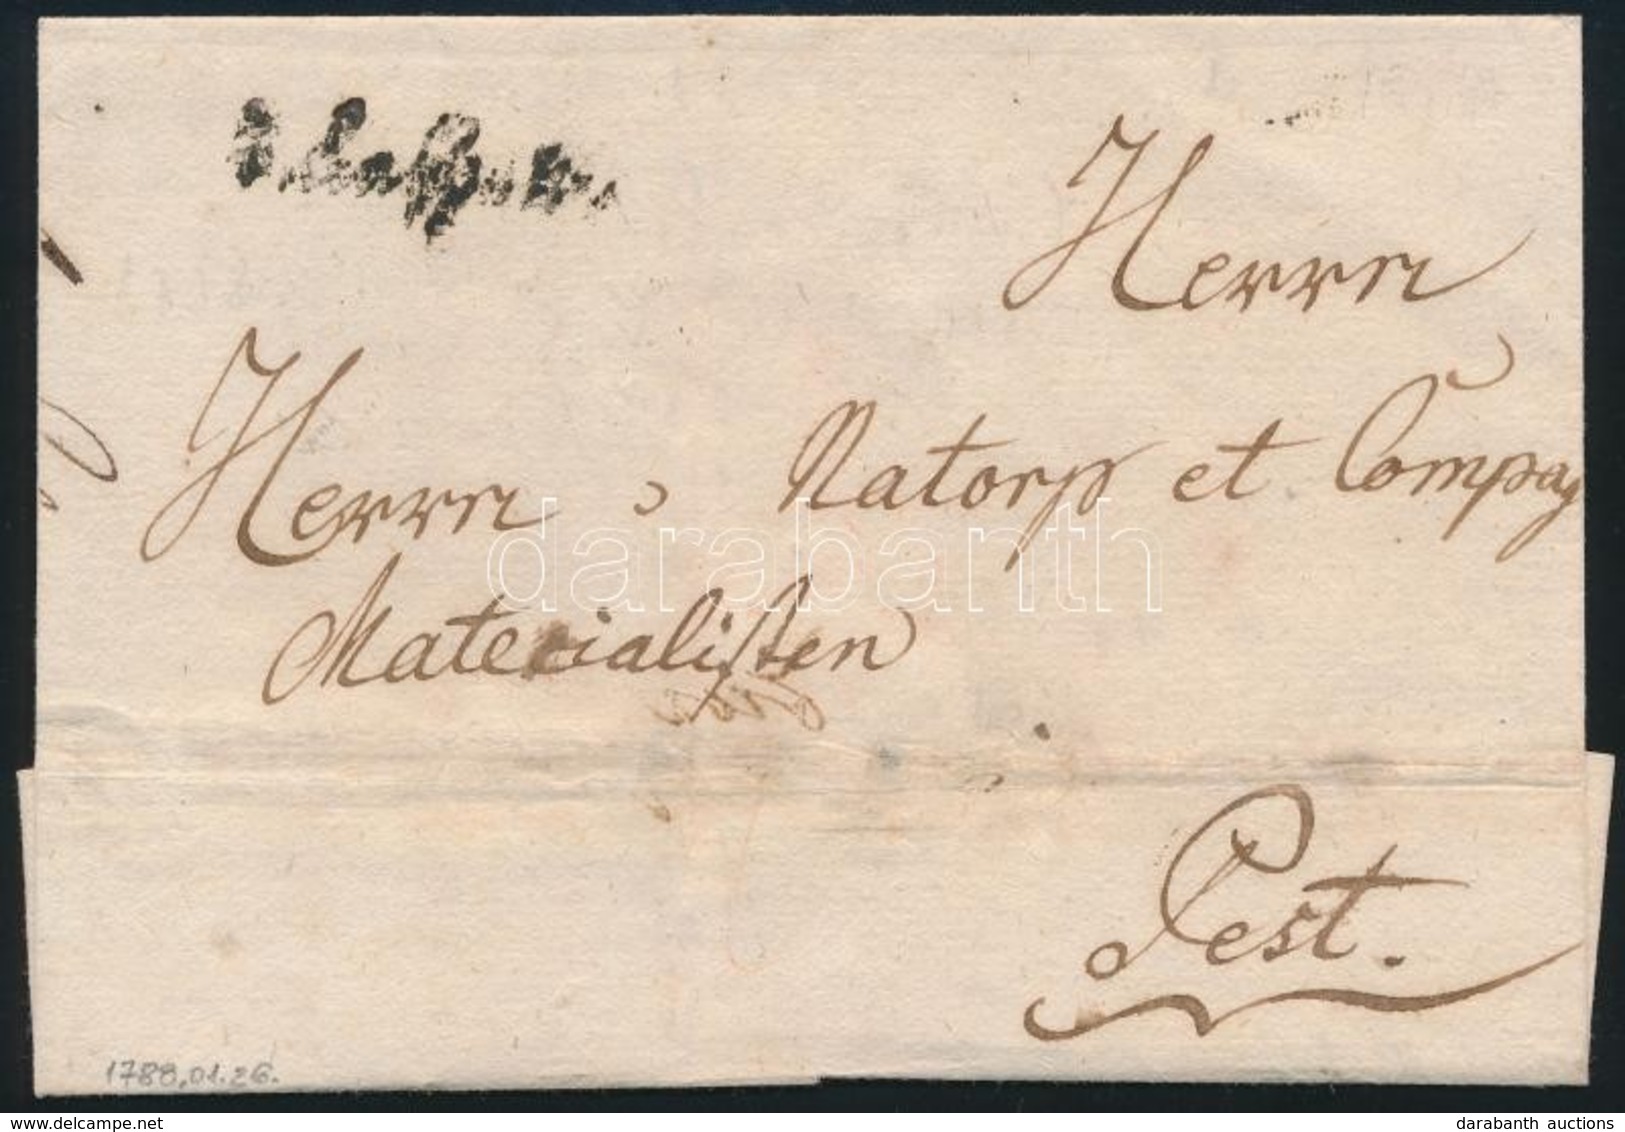 Herrn
Herrn Natorp et Compag
Materialisten
Pest.
1788.01.26.
darabanth
www.delcampe.net
darabanth auctions